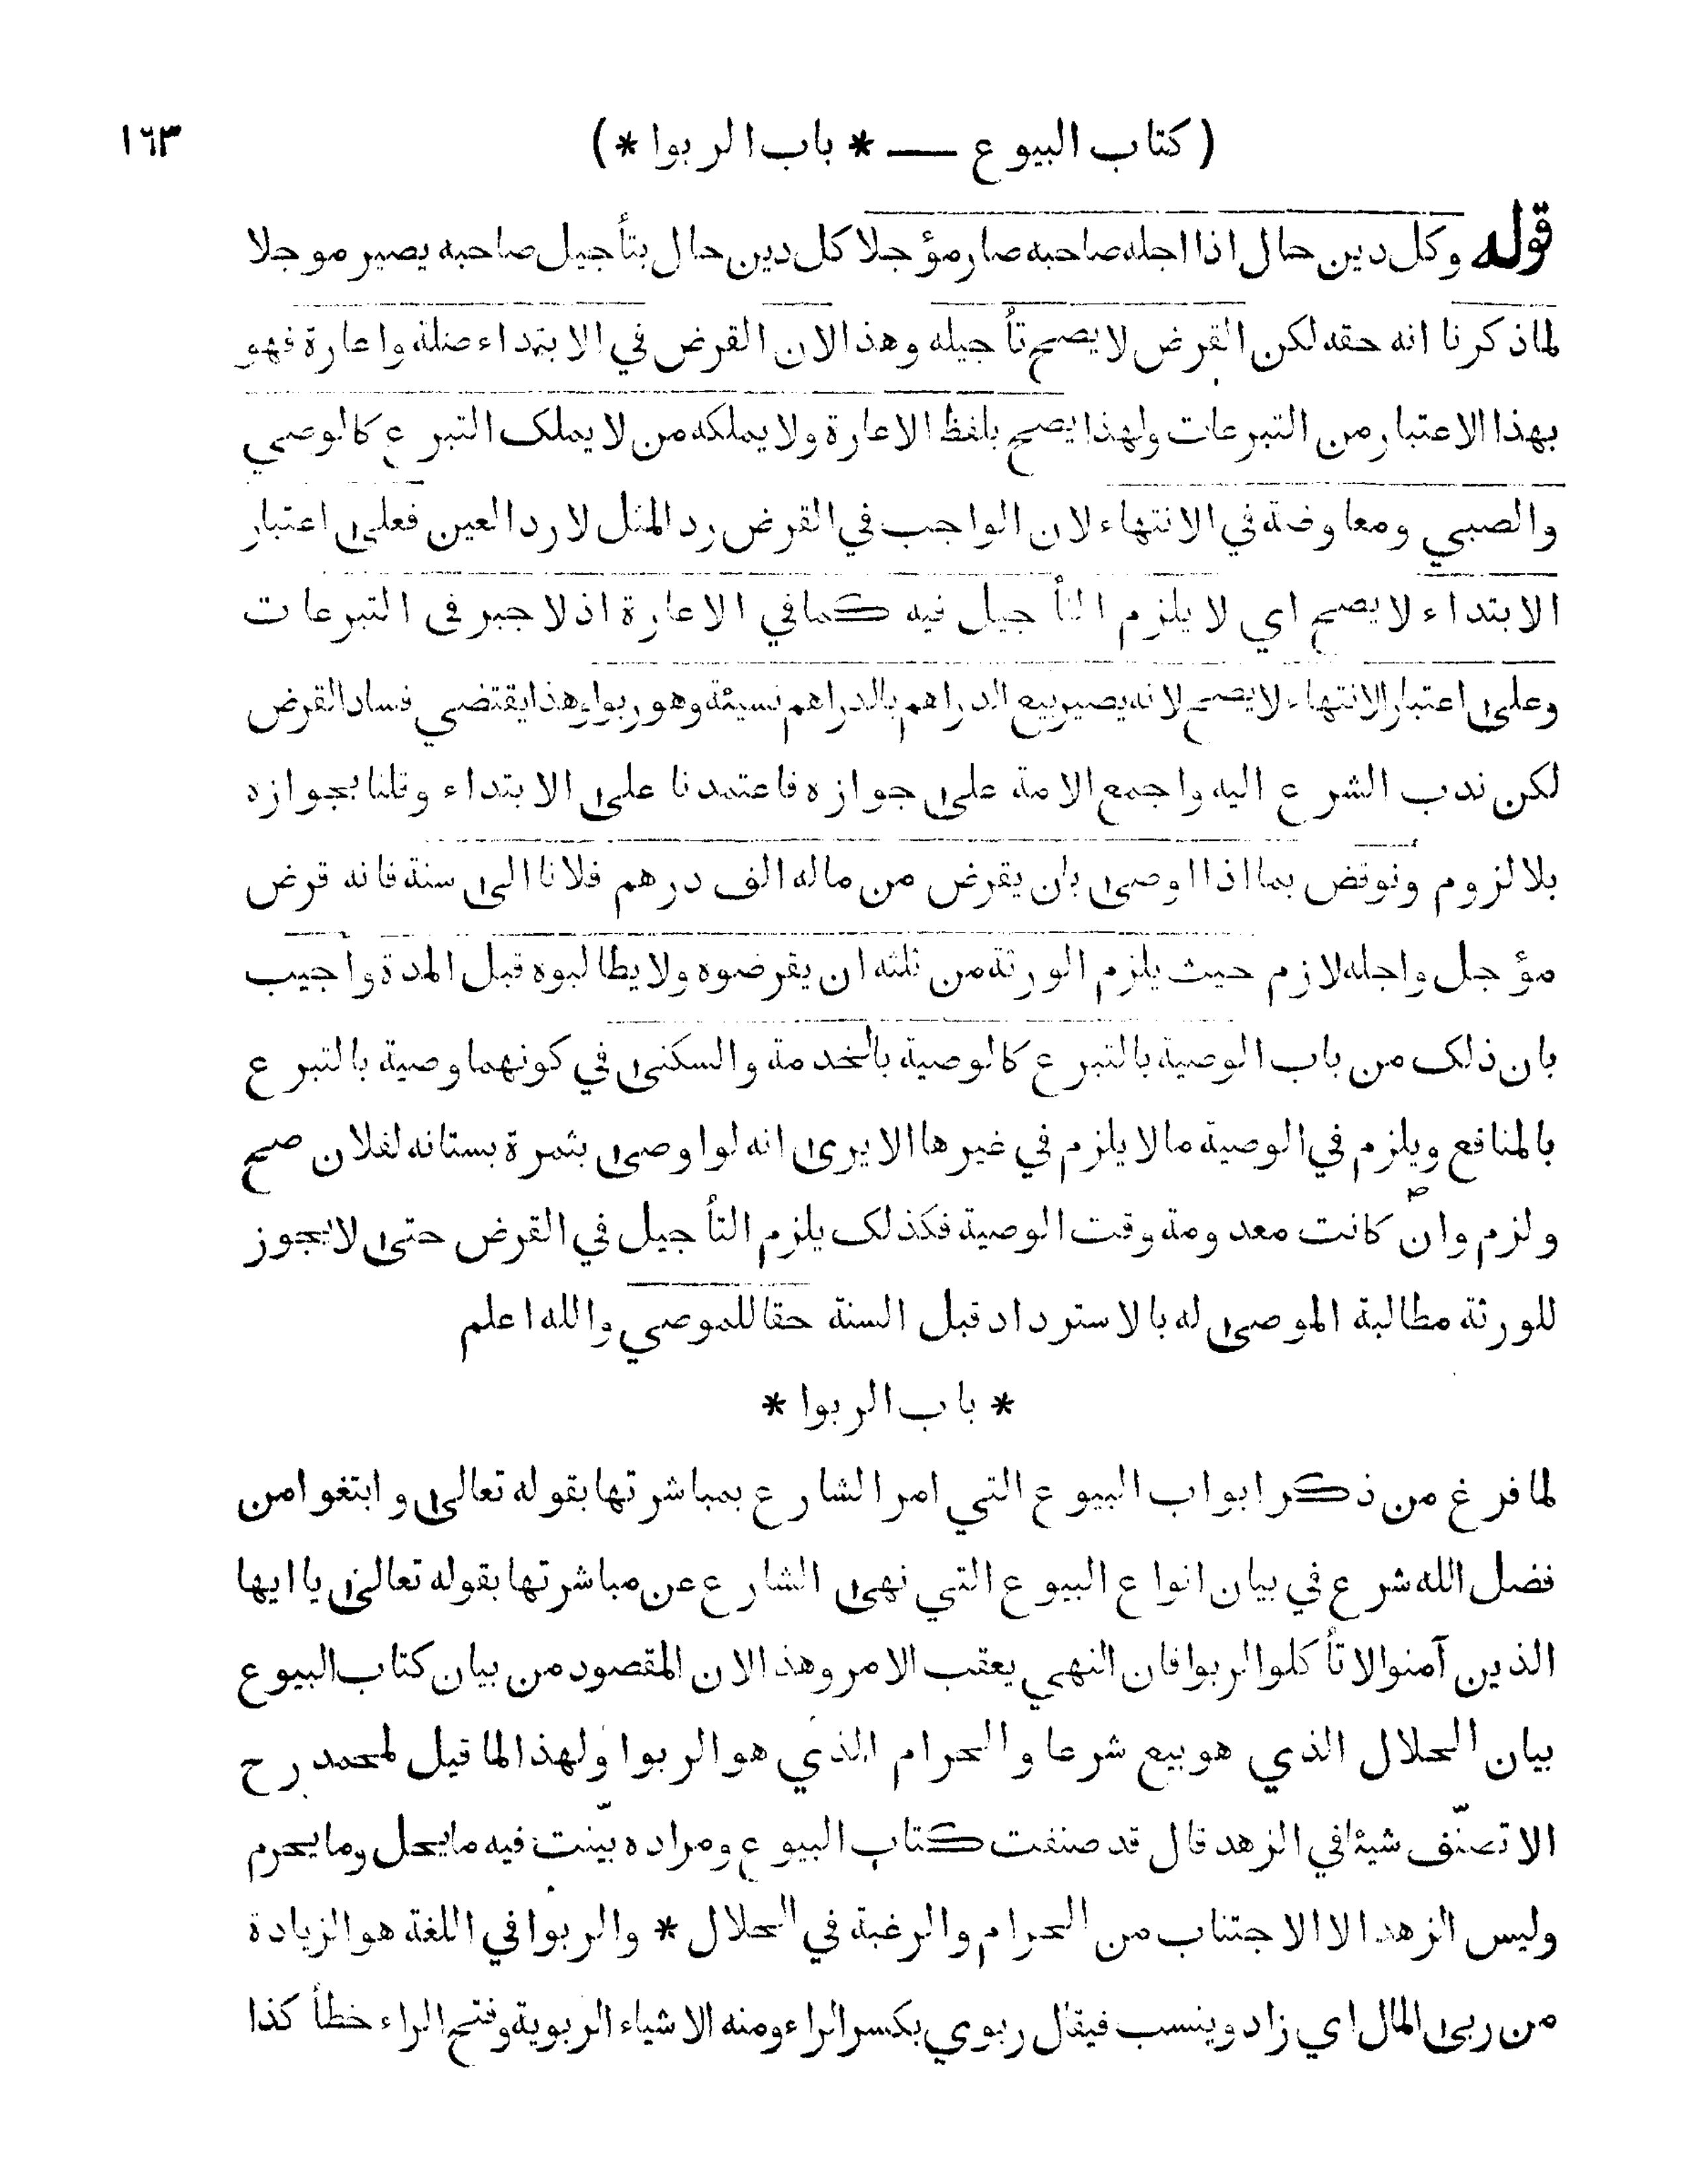 (كتاب البيوع — * باب الربوا *) ١٦٣
قوله وكل دين حال اذا اجله صاحبه صار مؤجلا كل دين حال بتأجيل صاحبه يصير موجلا
لما ذكرنا انه حقه لكن القرض لا يصح تأجيله وهذا لان القرض في الابتداء صلة واعارة فهو
بهذا الاعتبار من التبرعات ولهذا يصح بلفظ الاعارة ولا يملكه من لا يملك التبرع كالوصي
والصبي ومعاوضة في الانتهاء لان الواجب في القرض رد المثل لا رد العين فعلى اعتبار
الابتداء لا يصح اي لا يلزم التأجيل فيه كما في الاعارة اذ لا جبر فى التبرعات
وعلى اعتبار الانتهاء لا يصح لانه يصير بيع الدراهم بالدراهم نسيئة وهو ربوا وهذا يقتضي فساد القرض
لكن ندب الشرع اليه واجمع الامة على جوازه فاعتمدنا على الابتداء وقلنا بجوازه
بلا لزوم ونوقض بما اذا اوصى بان يقرض من ماله الف درهم فلانا الى سنة فانه قرض
مؤجل واجله لازم حيث يلزم الورثة من ثلثه ان يقرضوه ولا يطالبوه قبل المدة واجيب
بان ذلك من باب الوصية بالتبرع كالوصية بالخدمة والسكنى في كونهما وصية بالتبرع
بالمنافع ويلزم في الوصية ما لا يلزم في غيرها الا يرى انه لو اوصى بثمرة بستانه لفلان صح
ولزم وان كانت معدومة وقت الوصية فكذلك يلزم التأجيل في القرض حتى لا يجوز
للورثة مطالبة الموصى له بالاسترداد قبل السنة حقا للموصي والله اعلم
* باب الربوا *
لما فرغ من ذكر ابواب البيوع التي امر الشارع بمباشرتها بقوله تعالى وابتغوا من
فضل الله شرع في بيان انواع البيوع التي نهى الشارع عن مباشرتها بقوله تعالى يا ايها
الذين آمنوا لا تأكلوا الربوا فان النهي يعقب الامر وهذا لان المقصود من بيان كتاب البيوع
بيان الحلال الذي هو بيع شرعا والحرام الذي هو الربوا ولهذا لما قيل لمحمد رح
الا تصنّف شيئا في الزهد قال قد صنفت كتاب البيوع ومراده بيّنت فيه ما يحل وما يحرم
وليس الزهد الا الاجتناب من الحرام والرغبة في الحلال * والربوا في اللغة هو الزيادة
من ربى المال اي زاد وينسب فيقال ربوي بكسر الراء ومنه الاشياء الربوية وفتح الراء خطأ كذا